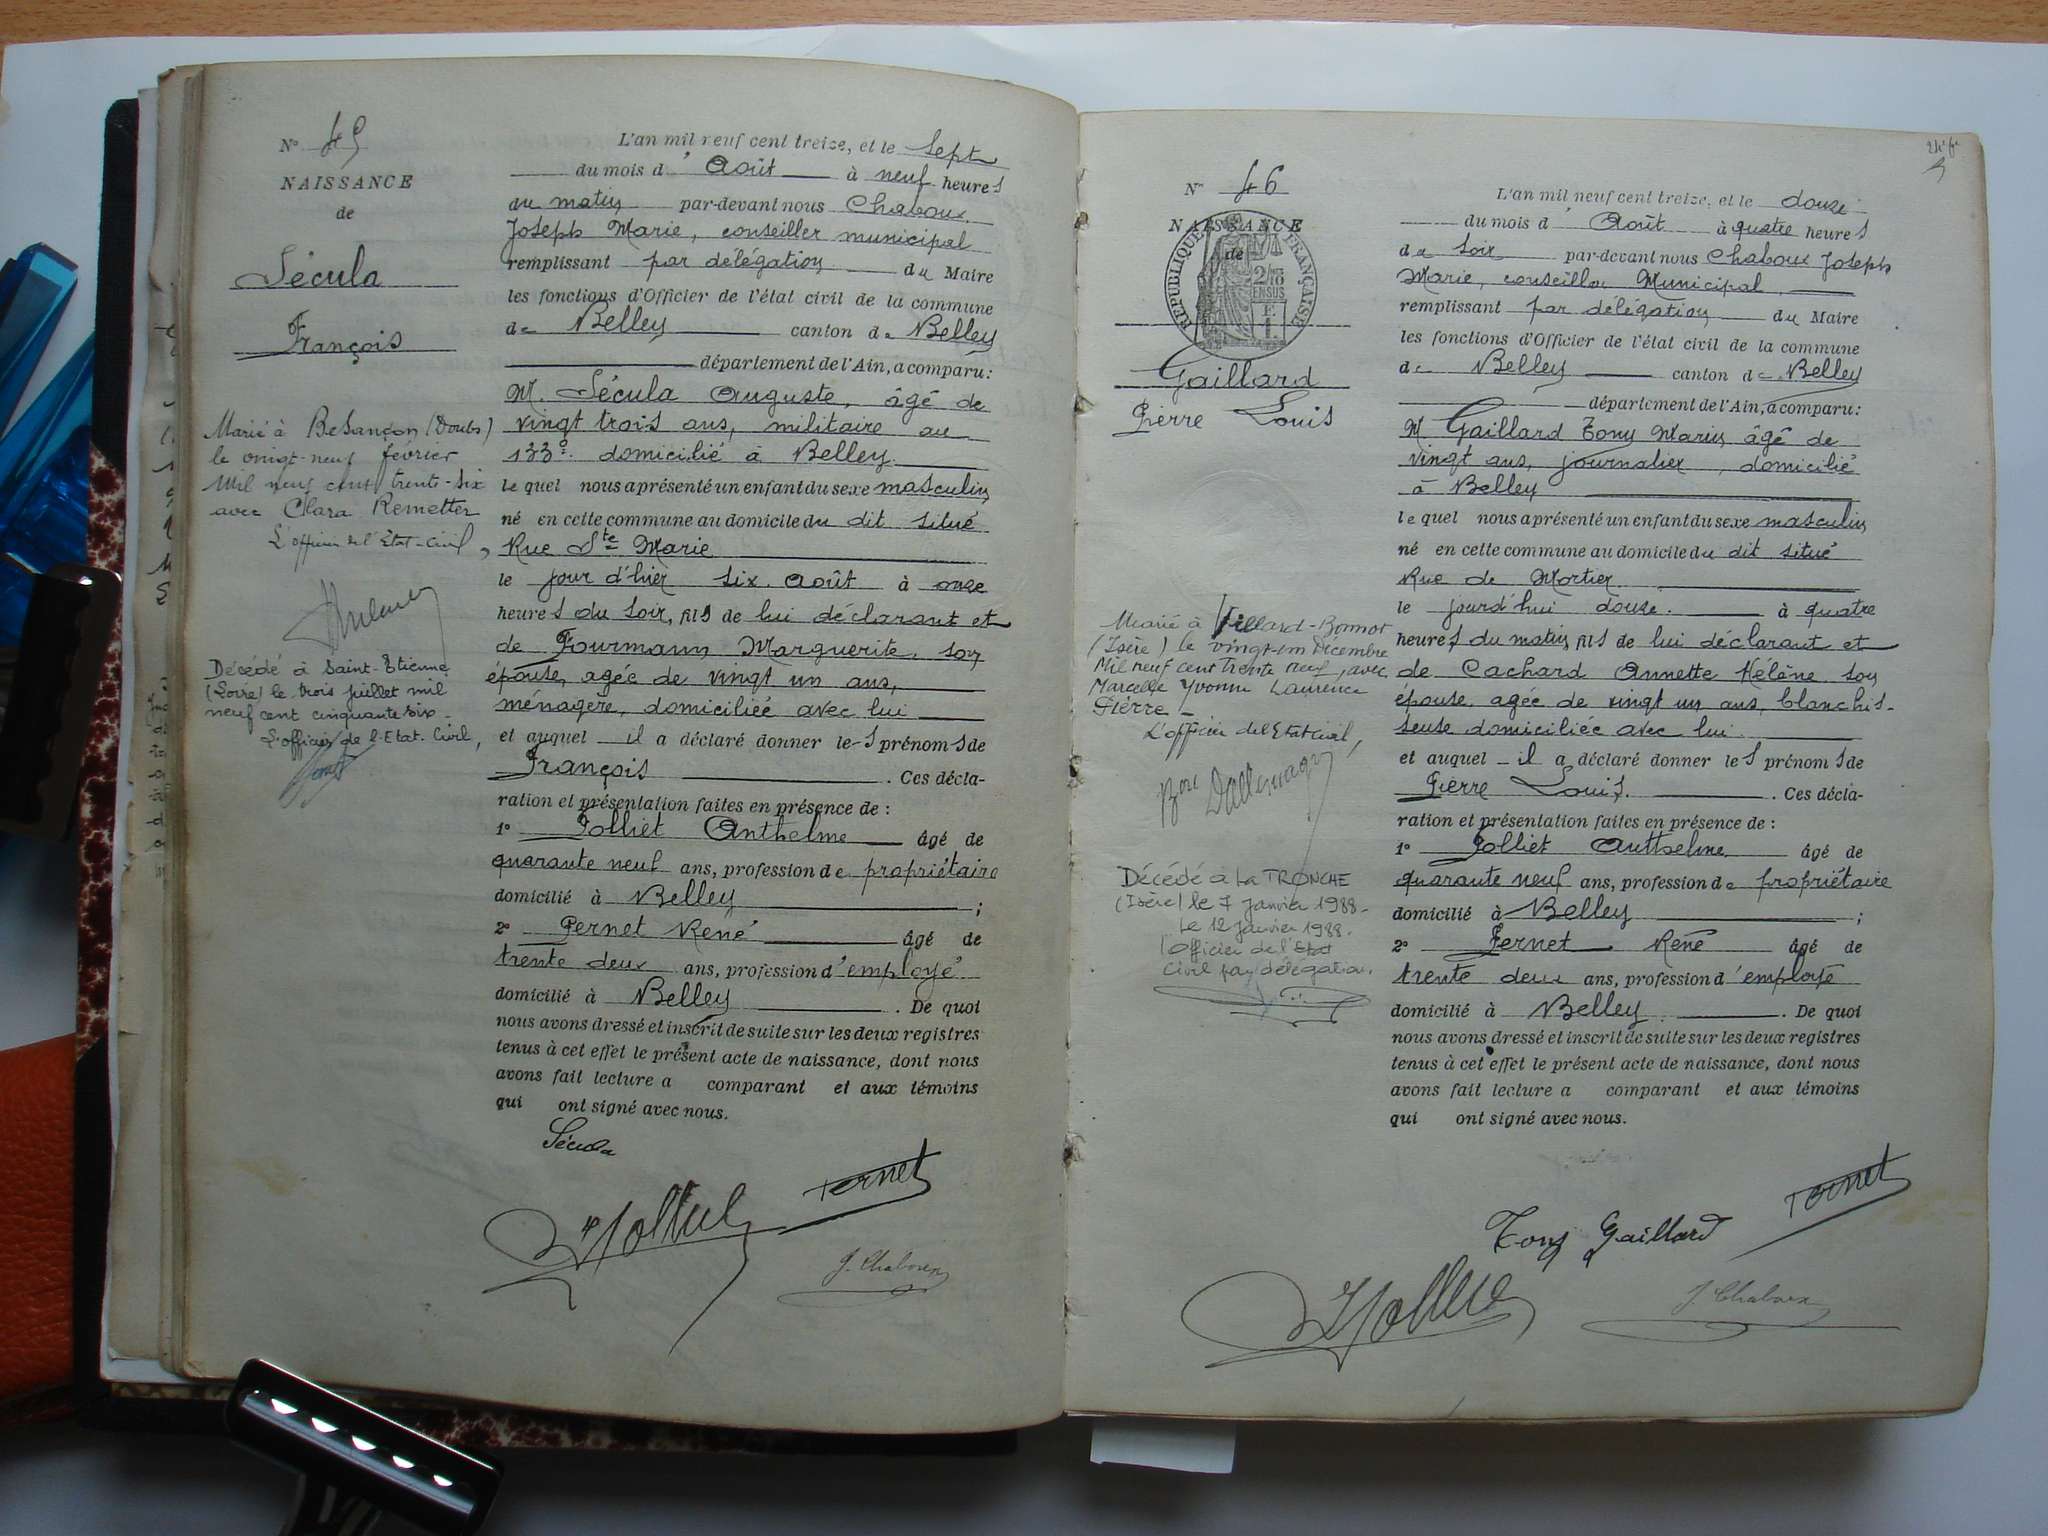 N° 45
NAISSANCE
de
Sécula
François
Marié à Besançon (Doubs)
le vingt-neuf février
mil neuf cent trente-six
avec Clara Remetter
L'officier de l'Etat-Civil,
Décédé à Saint-Etienne
(Loire) le trois juillet mil
neuf cent cinquante six
L'officier de l'Etat-Civil,
L'an mil neuf cent treize, et le sept
du mois d'Août à neuf heures
du matin par-devant nous Chaboux
Joseph Marie, conseiller municipal
remplissant par délégation du Maire
les fonctions d'Officier de l'état civil de la commune
de Belley canton de Belley
département de l'Ain, a comparu:
M. Sécula Auguste, âgé de
vingt trois ans, militaire au
133e domicilié à Belley
lequel nous a présenté un enfant du sexe masculin
né en cette commune au domicile du dit situé
Rue Ste Marie
le jour d'hier six Août à onze
heures du soir, fils de lui déclarant et
de Fourmann Marguerite, son
épouse, agée de vingt un ans,
ménagère, domiciliée avec lui
et auquel il a déclaré donner les prénoms de
François. Ces décla-
ration et présentation faites en présence de :
1° Jolliet Anthelme âgé de
quarante neuf ans, profession de propriétaire
domicilié à Belley ;
2° Pernet René âgé de
trente deux ans, profession d'employé
domicilié à Belley. De quoi
nous avons dressé et inscrit de suite sur les deux registres
tenus à cet effet le présent acte de naissance, dont nous
avons fait lecture a comparant et aux témoins
qui ont signé avec nous.
Sécula
Pernet
Jolliet
J. Chaboux
N° 46
NAISSANCE
de
REPUBLIQUE FRANÇAISE
Gaillard
Pierre Louis
Marié à Villard-Bonnot
(Isère) le vingt-un Décembre
Mil neuf cent trente neuf, avec
Marcelle Yvonne Laurence
Pierre
L'officier de l'Etat Civil,
Décédé à LA TRONCHE
(Isère) le 7 Janvier 1988.
Le 12 Janvier 1988.
l'officier de l'Etat
Civil par délégation.
L'an mil neuf cent treize, et le douze
du mois d'Août à quatre heures
du soir par-devant nous Chaboux Joseph
Marie, conseiller Municipal,
remplissant par délégation du Maire
les fonctions d'Officier de l'état civil de la commune
de Belley canton de Belley
département de l'Ain, a comparu:
M. Gaillard Tony Marius âgé de
vingt ans, journalier, domicilié
à Belley
lequel nous a présenté un enfant du sexe masculin
né en cette commune au domicile du dit situé
Rue de Mortier
le jourd'hui douze à quatre
heures du matin, fils de lui déclarant et
de Cachard Annette Hélène son
épouse, agée de vingt un ans, blanchis-
seuse domiciliée avec lui
et auquel il a déclaré donner les prénoms de
Pierre Louis. Ces décla-
ration et présentation faites en présence de :
1° Jolliet Anthelme âgé de
quarante neuf ans, profession de propriétaire
domicilié à Belley ;
2° Pernet René âgé de
trente deux ans, profession d'employé
domicilié à Belley. De quoi
nous avons dressé et inscrit de suite sur les deux registres
tenus à cet effet le présent acte de naissance, dont nous
avons fait lecture a comparant et aux témoins
qui ont signé avec nous.
Pernet
Tony Gaillard
Jolliet
J. Chaboux